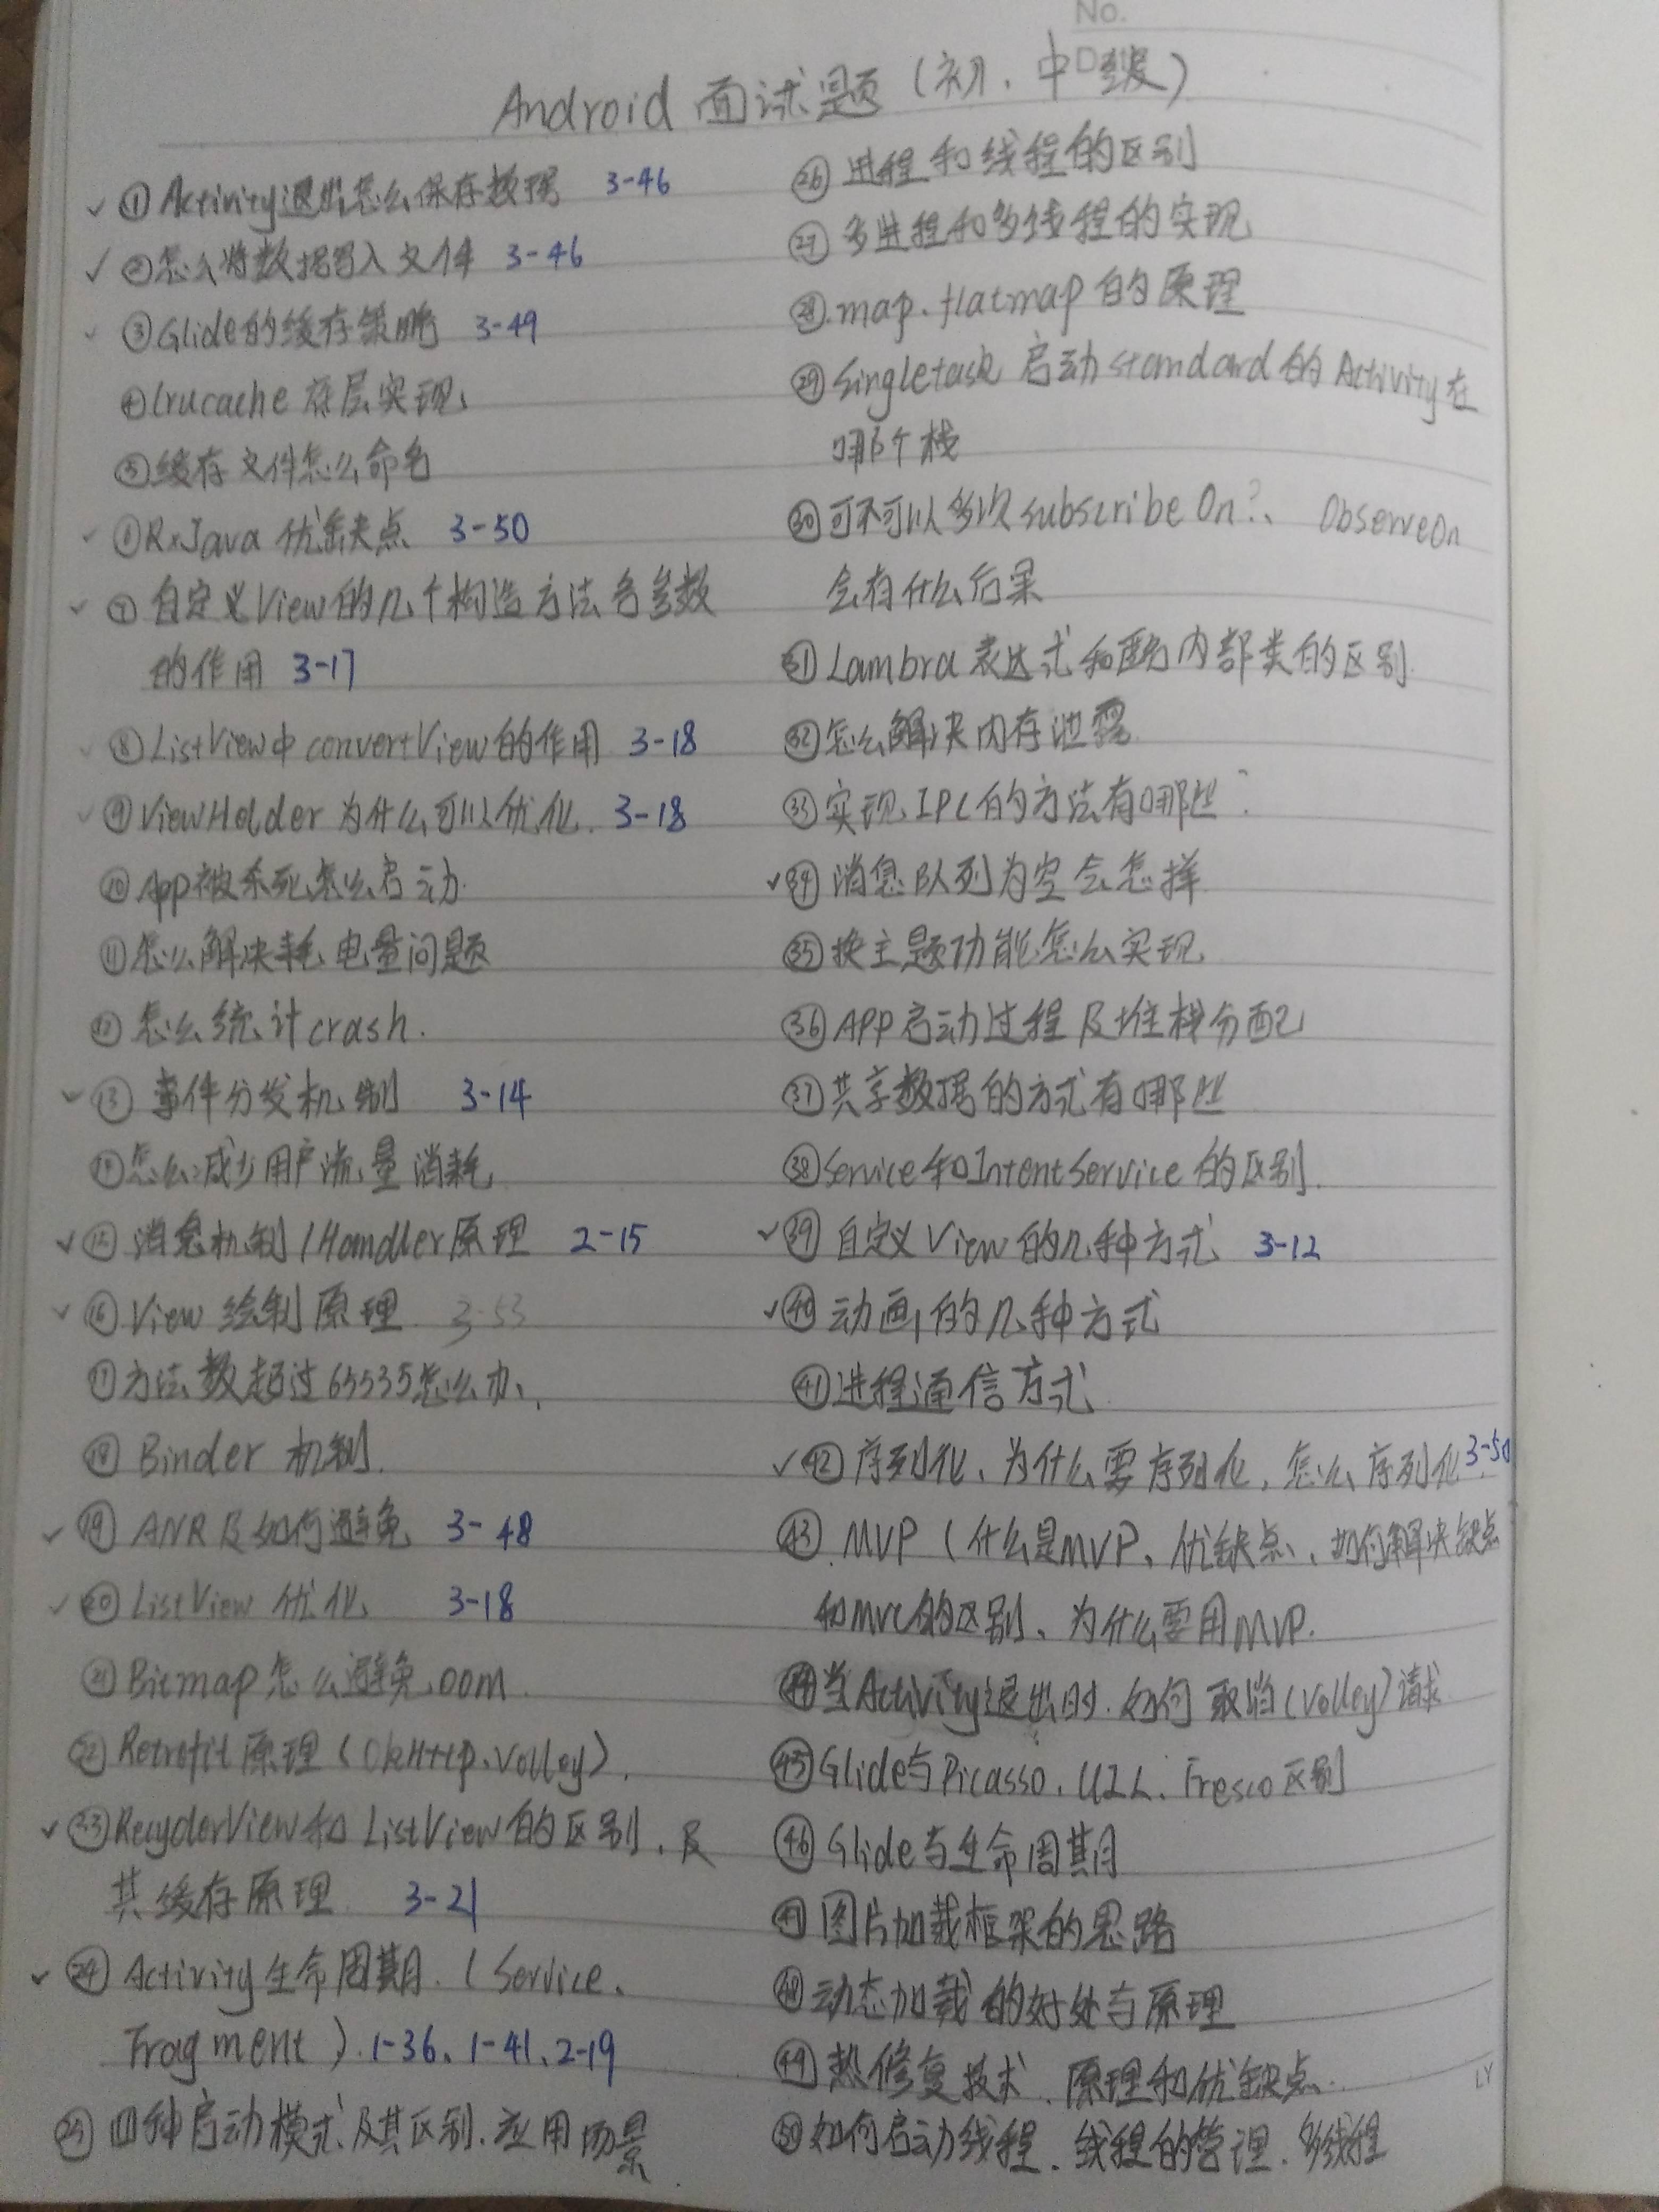 No.
Android 面试题（初、中级）
①Activity退出怎么保存数据 3-46
②怎么将数据写入文件 3-46
③Glide的缓存策略 3-49
④lrucache底层实现
⑤缓存文件怎么命名
⑥RxJava 优缺点 3-50
⑦自定义View的几个构造方法各参数
的作用 3-17
⑧ListView中convertView的作用 3-18
⑨ViewHolder为什么可以优化. 3-18
⑩App被杀死怎么启动.
⑪怎么解决耗电量问题
⑫怎么统计crash.
⑬事件分发机制 3-14
⑭怎么减少用户流量消耗
⑮消息机制/Handler原理 2-15
⑯View绘制原理 3-53
⑰方法数超过65535怎么办、
⑱Binder 机制.
⑲ANR及如何避免 3-48
⑳ListView 优化 3-18
㉑Bitmap怎么避免OOM.
㉒Retrofit原理（OkHttp.Volley）.
㉓RecyclerView和ListView的区别.及
其缓存原理 3-21
㉔Activity生命周期.（Service、
Fragment）.1-36、1-41、2-19
㉕四种启动模式及其区别.应用场景
㉖进程和线程的区别
㉗多进程和多线程的实现
㉘.map.flatmap的原理
㉙Singletask启动standard的Activity在
哪个栈
㉚可不可以多次subscribeOn?、ObserveOn
会有什么后果
㉛Lambra表达式和匿名内部类的区别.
㉜怎么解决内存泄露
㉝实现IPC的方法有哪些?
㉞消息队列为空会怎样
㉟换主题功能怎么实现
㊱APP启动过程及堆栈分配
㊲共享数据的方式有哪些
㊳Service和IntentService的区别.
㊴自定义View的几种方式 3-12
㊵动画的几种方式
㊶进程通信方式
㊷序列化、为什么要序列化，怎么序列化 3-50
㊸.MVP（什么是MVP、优缺点、如何解决缺点
和MVC的区别、为什么要用MVP.
㊹当Activity退出时.如何取消(Volley)请求
㊺Glide与Picasso、UIL、Fresco区别
㊻Glide与生命周期
㊼图片加载框架的思路
㊽动态加载的好处与原理
㊾热修复技术、原理和优缺点.
㊿如何启动线程、线程的管理.多线程
LY